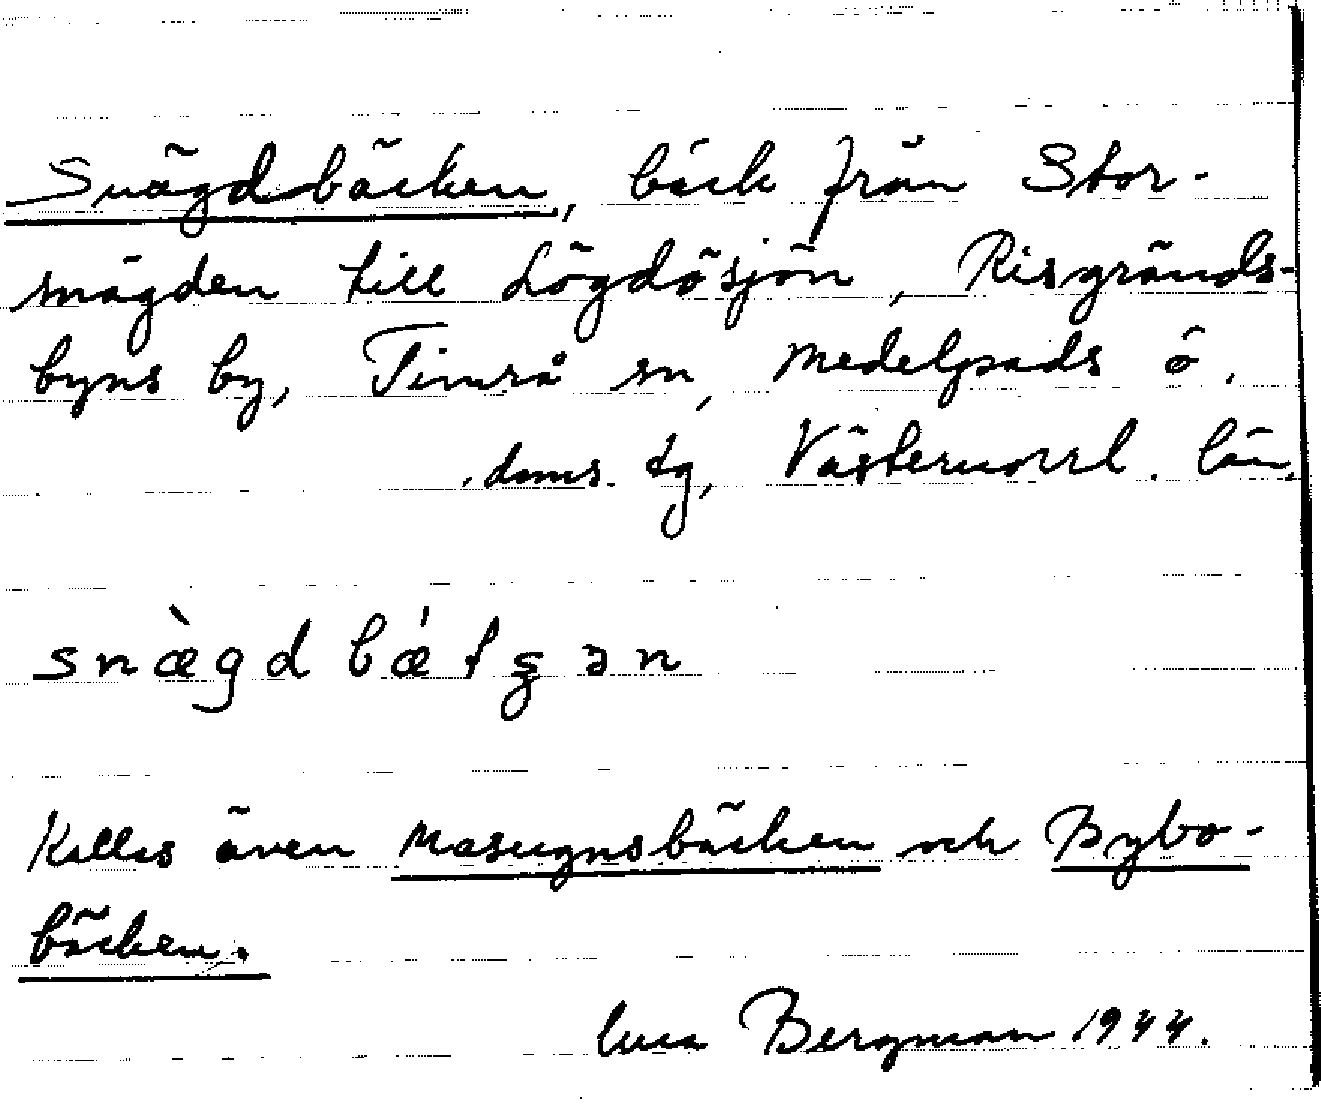 Snägdbäcken, bäck från Stor-
snägden till Lögdösjön, Risgrands-
byns by, Timrå sn, Medelpads ö.
doms. tg, Västernorrl. län.
snæ̀gd bǽtʂən
Kallas även Masugnsbäcken och Bybo-
bäcken.
Bergman 1944.